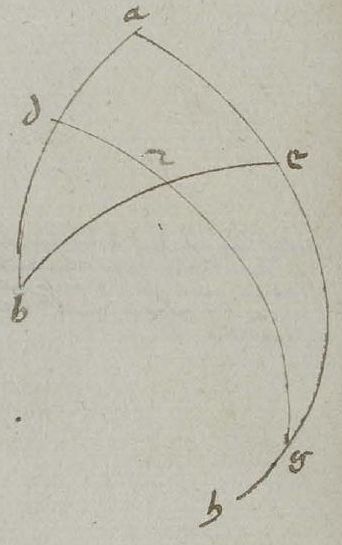 a
d
z
e
b
g
h